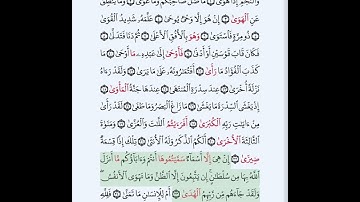 وَٱلنَّجْمِ إِذَا هَوَىٰ مَا ضَلَّ صَاحِبُكُمْ وَمَا غَوَىٰ وَمَا يَنطِقُ
عَنِ ٱلْهَوَىٰٓ إِنْ هُوَ إِلَّا وَحْىٌ يُوحَىٰ عَلَّمَهُۥ شَدِيدُ ٱلْقُوَىٰ
ذُو مِرَّةٍ فَٱسْتَوَىٰ وَهُوَ بِٱلْأُفُقِ ٱلْأَعْلَىٰ ثُمَّ دَنَا فَتَدَلَّىٰ
فَكَانَ قَابَ قَوْسَيْنِ أَوْ أَدْنَىٰ فَأَوْحَىٰٓ إِلَىٰ عَبْدِهِۦ مَآ أَوْحَىٰ مَا
كَذَبَ ٱلْفُؤَادُ مَا رَأَىٰٓ أَفَتُمَٰرُونَهُۥ عَلَىٰ مَا يَرَىٰ وَلَقَدْ رَءَاهُ
نَزْلَةً أُخْرَىٰ عِندَ سِدْرَةِ ٱلْمُنتَهَىٰ عِندَهَا جَنَّةُ ٱلْمَأْوَىٰٓ
إِذْ يَغْشَى ٱلسِّدْرَةَ مَا يَغْشَىٰ مَا زَاغَ ٱلْبَصَرُ وَمَا طَغَىٰ لَقَدْ رَأَىٰ
مِنْ ءَايَٰتِ رَبِّهِ ٱلْكُبْرَىٰٓ أَفَرَءَيْتُمُ ٱللَّٰتَ وَٱلْعُزَّىٰ وَمَنَوٰةَ
ٱلثَّالِثَةَ ٱلْأُخْرَىٰٓ أَلَكُمُ ٱلذَّكَرُ وَلَهُ ٱلْأُنثَىٰ تِلْكَ إِذًا قِسْمَةٌ
ضِيزَىٰٓ إِنْ هِىَ إِلَّآ أَسْمَآءٌ سَمَّيْتُمُوهَآ أَنتُمْ وَءَابَآؤُكُم مَّآ أَنزَلَ
ٱللَّهُ بِهَا مِن سُلْطَٰنٍ إِن يَتَّبِعُونَ إِلَّا ٱلظَّنَّ وَمَا تَهْوَى ٱلْأَنفُسُ
وَلَقَدْ جَآءَهُم مِّن رَّبِّهِمُ ٱلْهُدَىٰٓ أَمْ لِلْإِنسَٰنِ مَا تَمَنَّىٰ فَلِلَّهِ